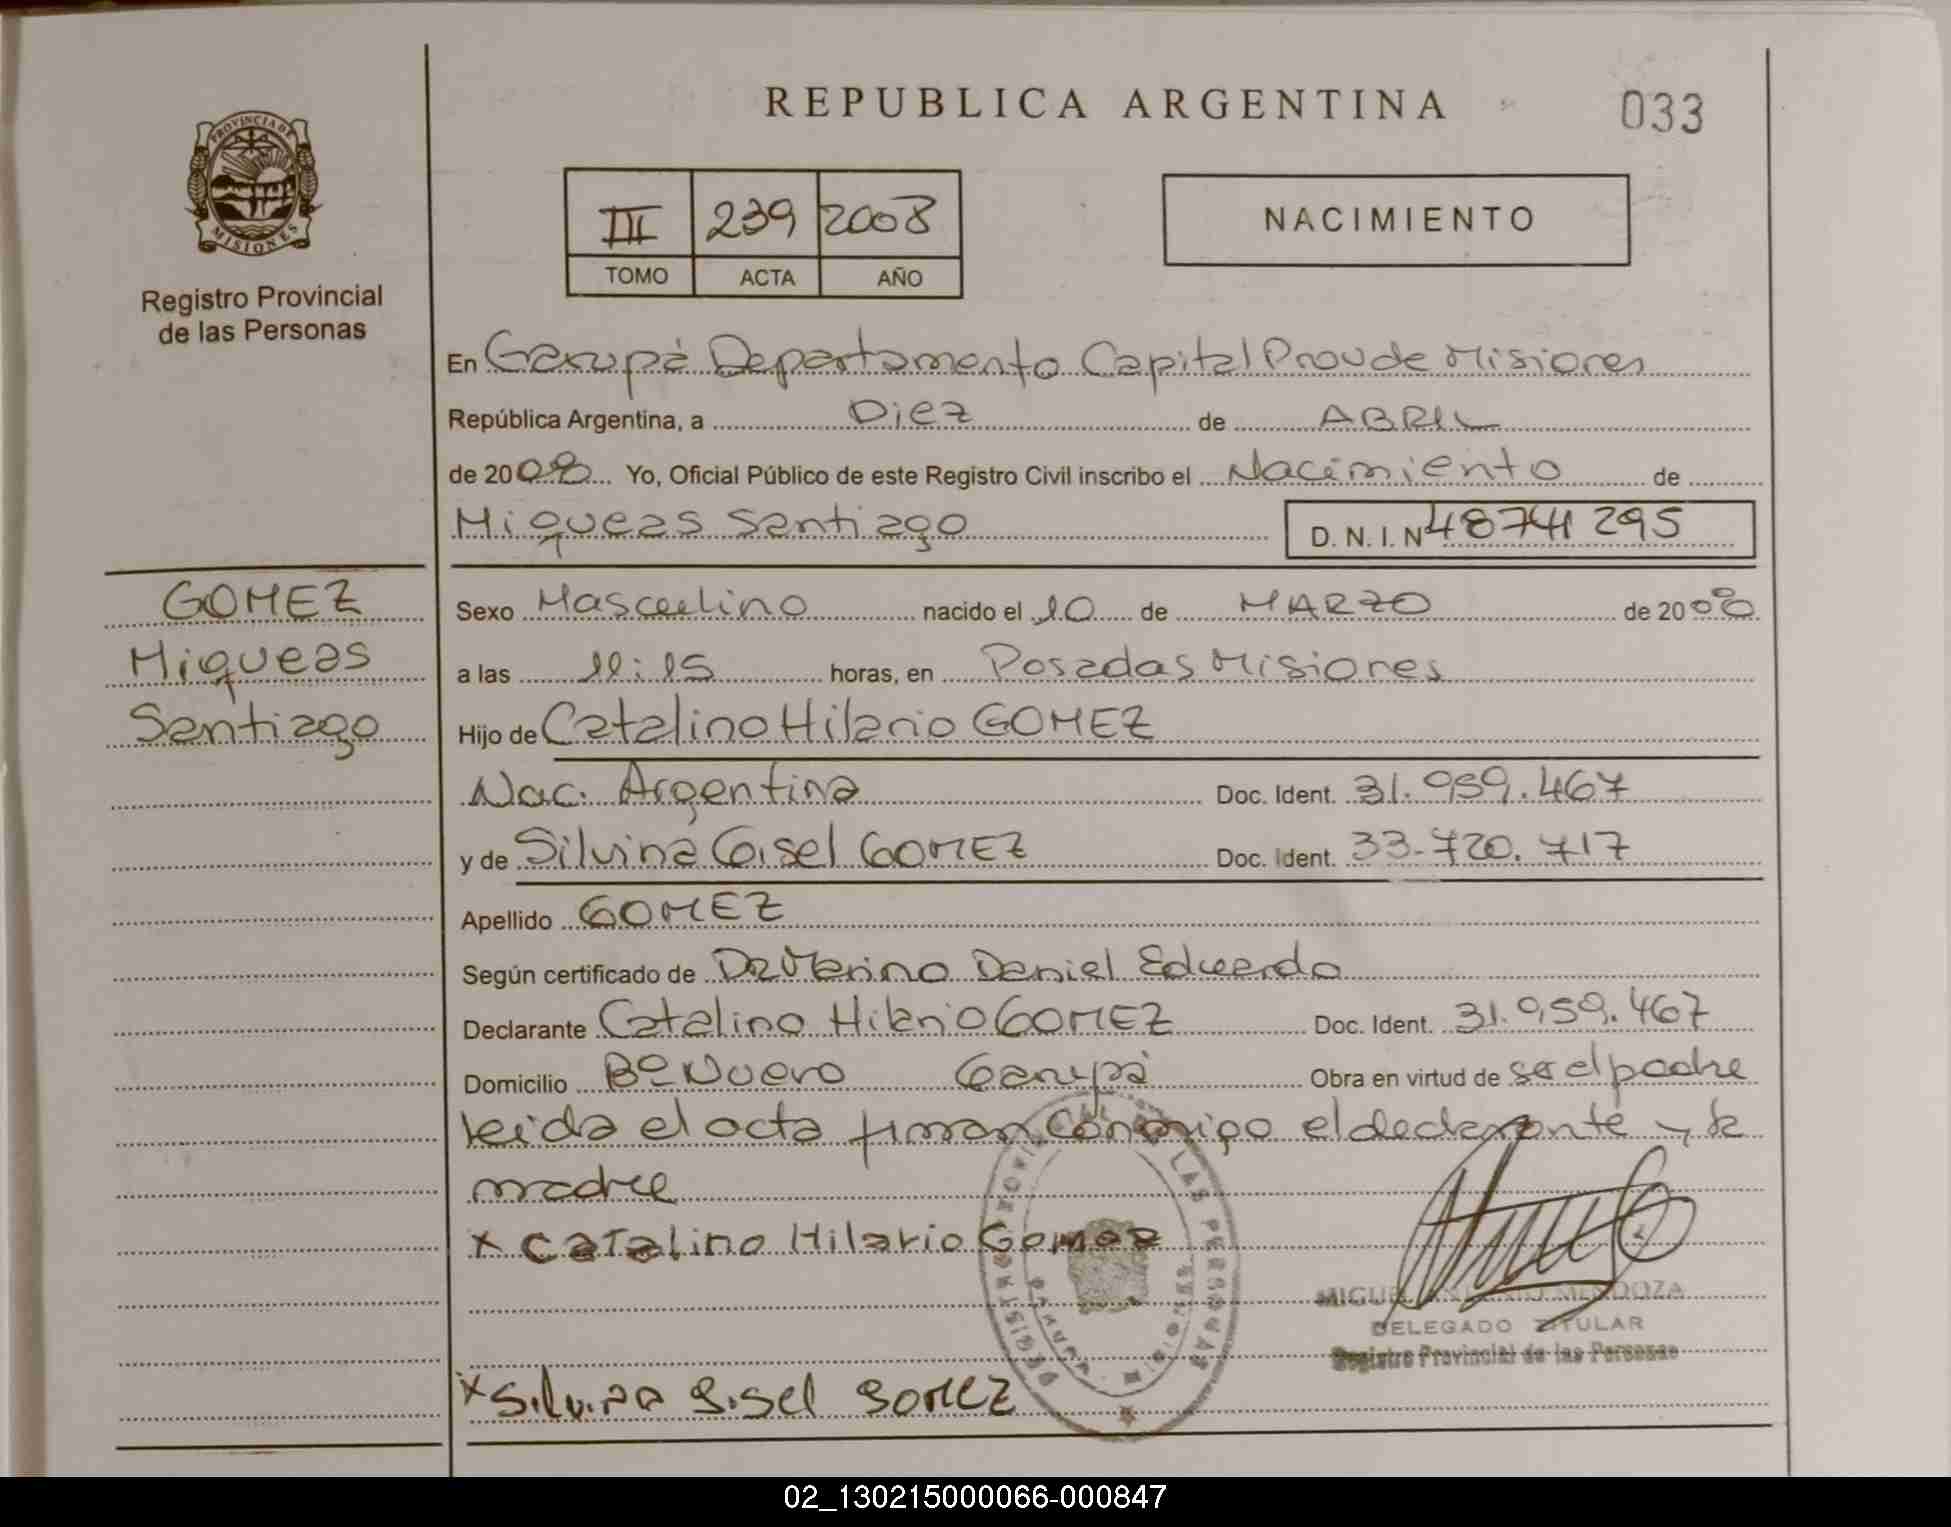 REPUBLICA ARGENTINA
033
PROVINCIA DE
MISIONES
Registro Provincial
de las Personas
III 239 2008
TOMO ACTA AÑO
NACIMIENTO
En Garupá Departamento Capital Prov de Misiones
República Argentina, a Diez de ABRIL
de 2008 Yo, Oficial Público de este Registro Civil inscribo el Nacimiento de
Miqueas Santiago D. N. I. N 48741295
GOMEZ
Miqueas
Santiago
Sexo Masculino nacido el 10 de MARZO de 2008
a las 11:15 horas, en Posadas Misiones
Hijo de Catalino Hilario GOMEZ
Nac. Argentina Doc. Ident. 31.959.467
y de Silvina Gisel GOMEZ Doc. Ident. 33.720.717
Apellido GOMEZ
Según certificado de Dr Merino Daniel Eduardo
Declarante Catalino Hilario GOMEZ Doc. Ident. 31.959.467
Domicilio Bº Nuevo Garupá Obra en virtud de ser el padre
leida el acta firman conmigo el declarante y la
madre
x Catalino Hilario Gomez
MIGUEL ANTONIO MENDOZA
DELEGADO TITULAR
Registro Provincial de las Personas
x Silvina Gisel GOMEZ
REGISTRO PROVINCIAL DE LAS PERSONAS
02_130215000066-000847